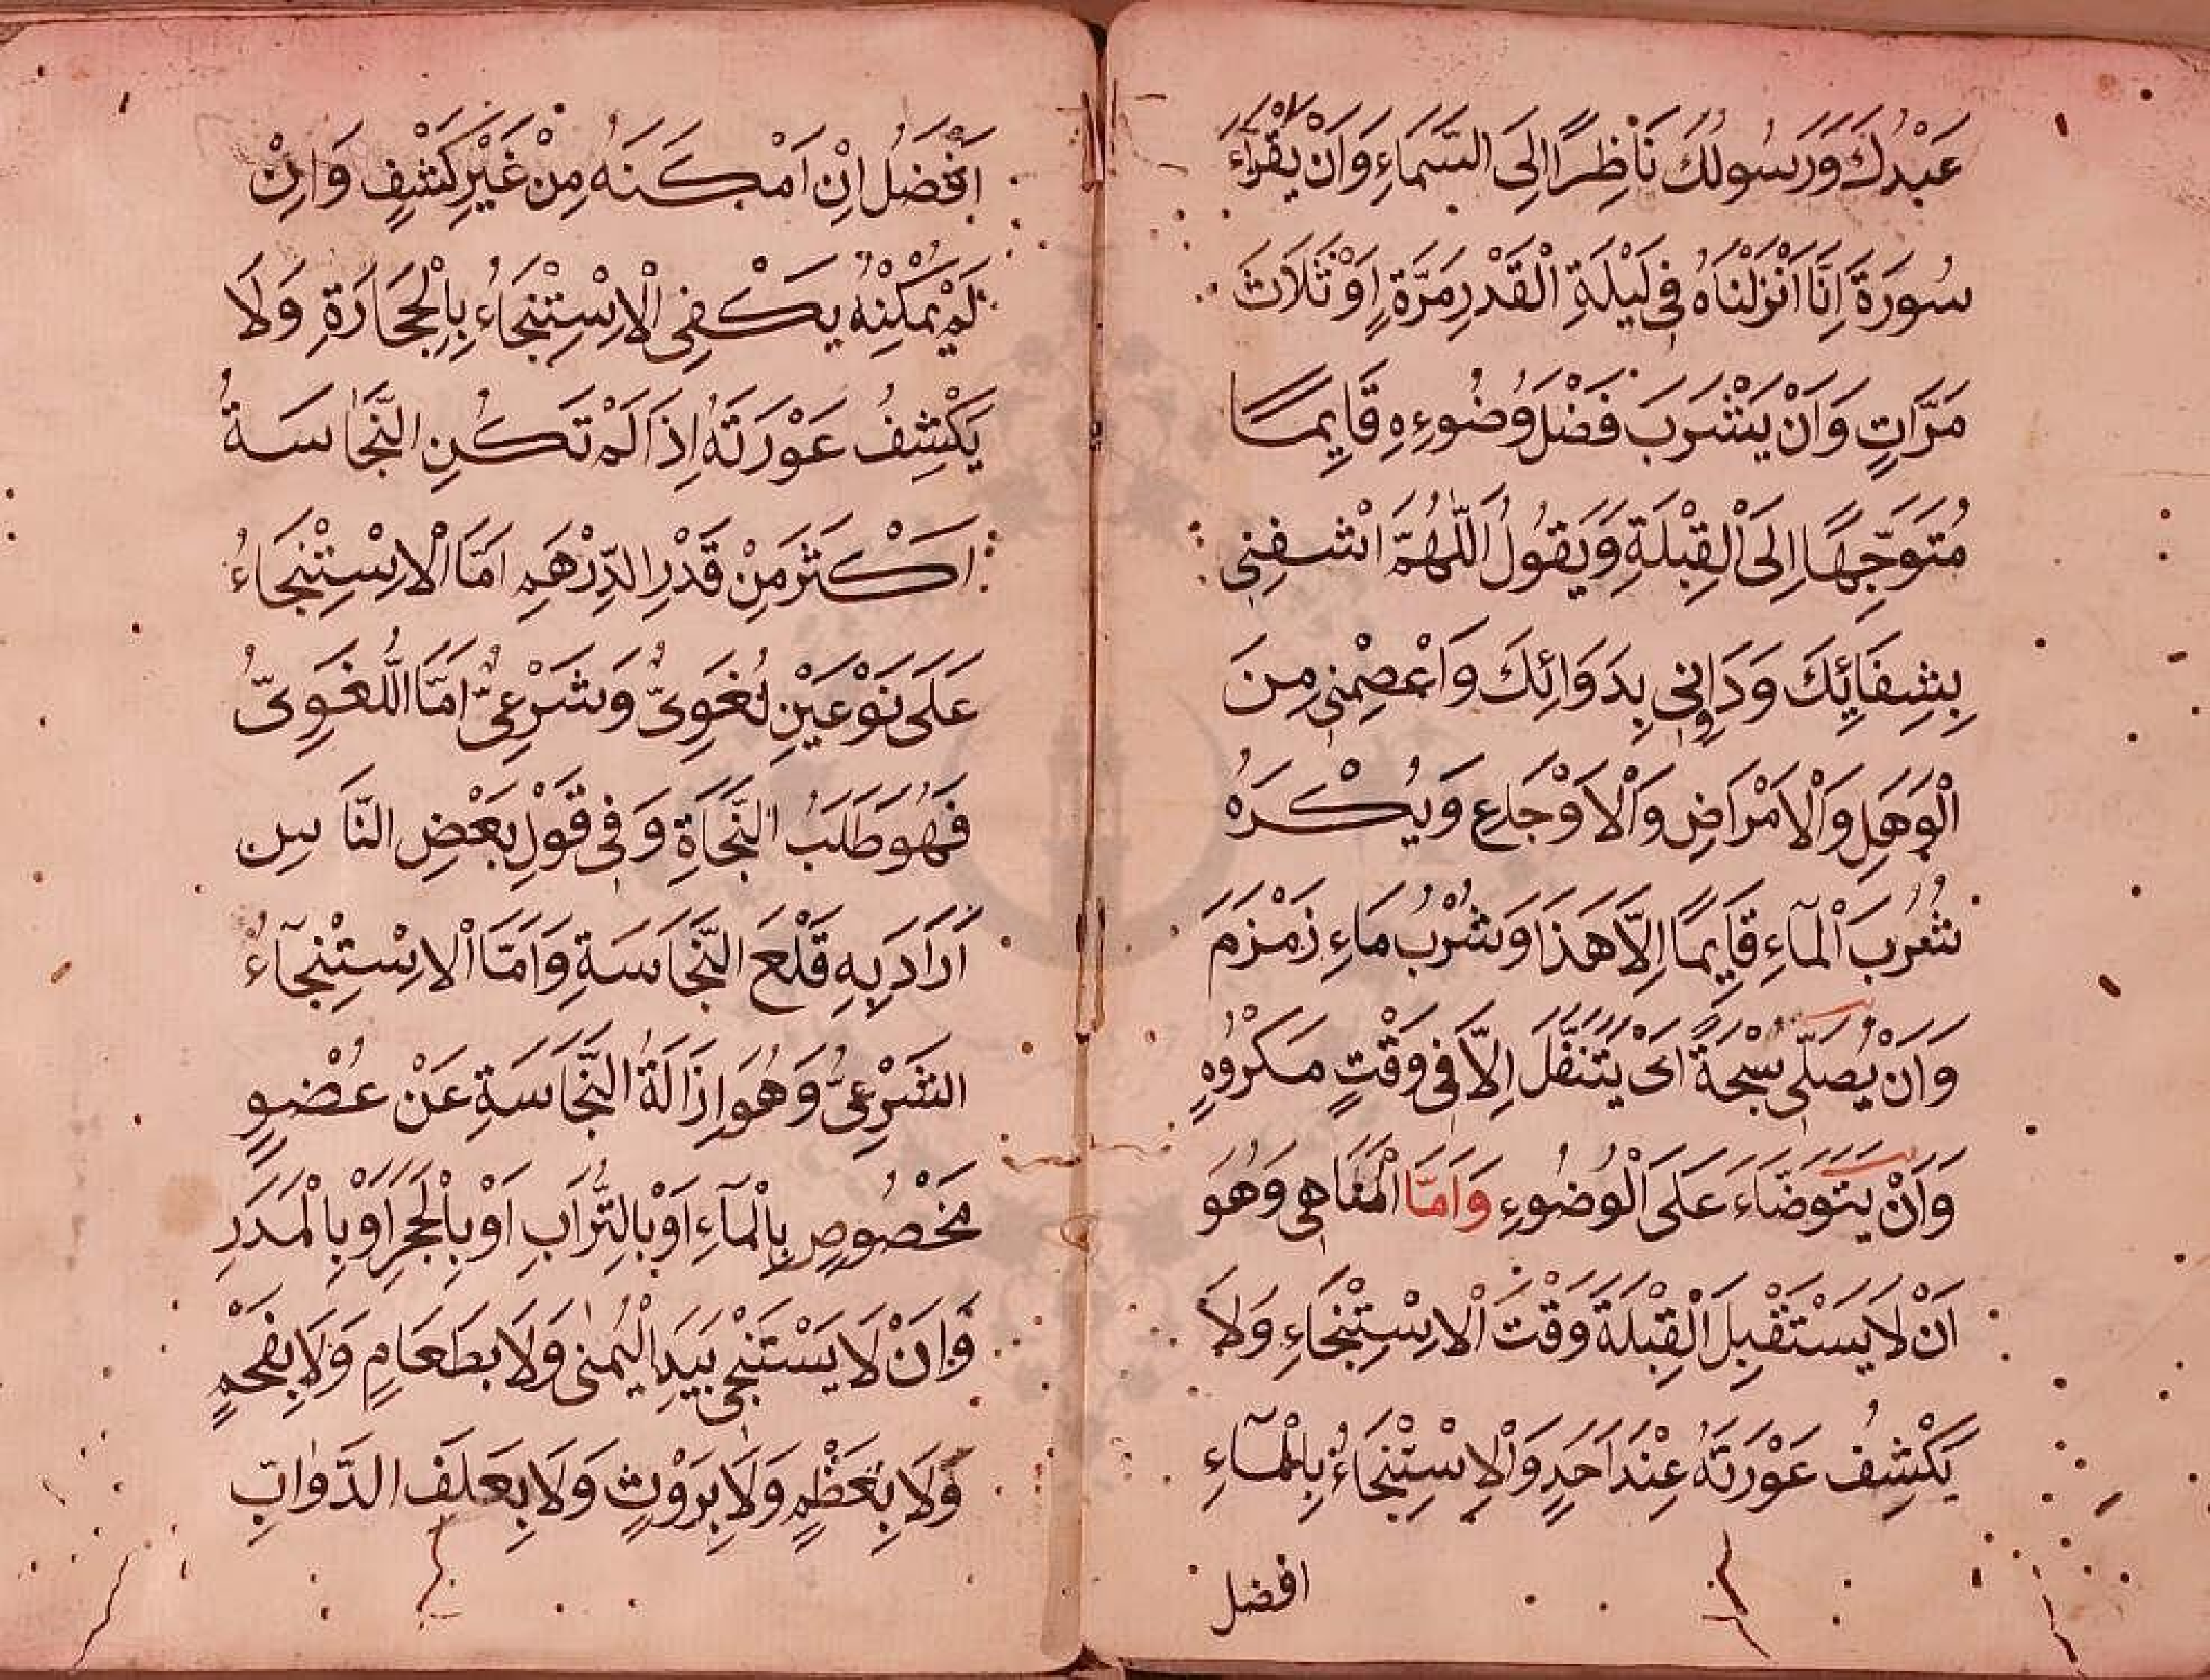 عَبْدُكَ وَرَسُولُكَ نَاظِرًا اِلَى السَّمَاءِ وَاَنْ يَقْرَاَءَ
سُورَةَ اِنَّا اَنْزَلْنَاهُ فِى لَيْلَةِ الْقَدْرِ مَرَّةً اَوْ ثَلَاثَ
مَرَّاتٍ وَاَنْ يَشْرَبَ فَضْلَ وَضُوءِهِ قَايِمًا
مُتَوَجِّهًا اِلَى الْقِبْلَةِ وَيَقُولُ اَللّٰهُمَّ اشْفِنِى
بِشِفَايِٕكَ وَدَاوِنِى بِدَوَائِكَ وَاعْصِمْنِى مِنَ
الْوَهَلِ وَالْاَمْرَاضِ وَالْاَوْجَاعِ وَيُكْرَهُ
شُرْبُ الْمَآءِ قَايِمًا اِلَّا هَذَا وَشُرْبُ مَاءِ زَمْزَمَ
وَاَنْ يُصَلِّىَ سُبْحَةً اَىْ يَتَنَفَّلَ اِلَّا فِى وَقْتٍ مَكْرُوهٍ
وَاَنْ يَتَوَضَّاَءَ عَلَى الْوُضُوءِ وَاَمَّا الْمَنَاهِى وَهُوَ
اَنْ لَا يَسْتَقْبِلَ الْقِبْلَةَ وَقْتَ الْاِسْتِنْجَاءِ وَلَا
يَكْشِفُ عَوْرَتَهُ عِنْدَ اَحَدٍ وَالْاِسْتِنْجَاءُ بِالْمَآءِ
افضل
اَفْضَلُ اِنْ اَمْكَنَهُ مِنْ غَيْرِ كَشْفٍ وَاِنْ
لَمْ يُمْكِنْهُ يَكْفِى الْاِسْتِنْجَاءُ بِالْحِجَارَةِ وَلَا
يَكْشِفُ عَوْرَتَهُ اِذَا لَمْ تَكُنِ النَّجَاسَةُ
اَكْثَرَ مِنْ قَدْرِ الدِّرْهَمِ اَمَّا الْاِسْتِنْجَاءُ
عَلَى نَوْعَيْنِ لُغَوِىٌّ وَشَرْعِىٌّ اَمَّا اللُّغَوِىُّ
فَهُوَ طَلَبُ النَّجَاةِ وَفِى قَوْلِ بَعْضِ النَّاسِ
اَرَادَ بِهِ قَلْعَ النَّجَاسَةِ وَاَمَّا الْاِسْتِنْجَآءُ
الشَّرْعِىُّ وَهُوَ اِزَالَةُ النَّجَاسَةِ عَنْ عُضْوٍ
مَخْصُوصٍ بِالْمَآءِ اَوْ بِالتُّرَابِ اَوْ بِالْحَجَرِ اَوْ بِالْمَدَرِ
وَاَنْ لَا يَسْتَنْجِى بِيَدِ الْيُمْنٰى وَلَا بِطَعَامٍ وَلَا بِفَحْمٍ
وَلَا بِعَظْمٍ وَلَا بِرَوْثٍ وَلَا بِعَلَفِ الدَّوَابِّ